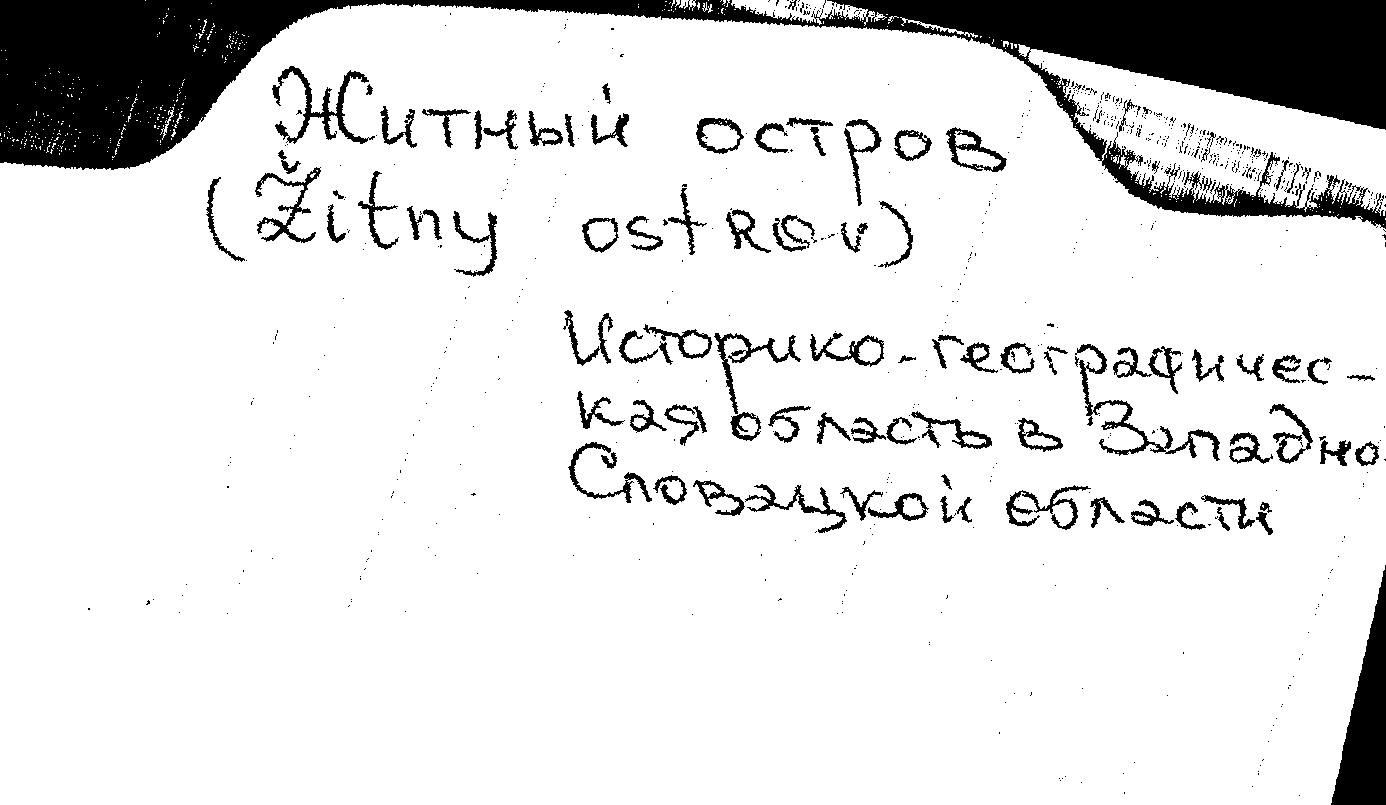 Житный остров
(Žitny ostrov)
Историко-географичес-
кая область в Западно
Словацкой области